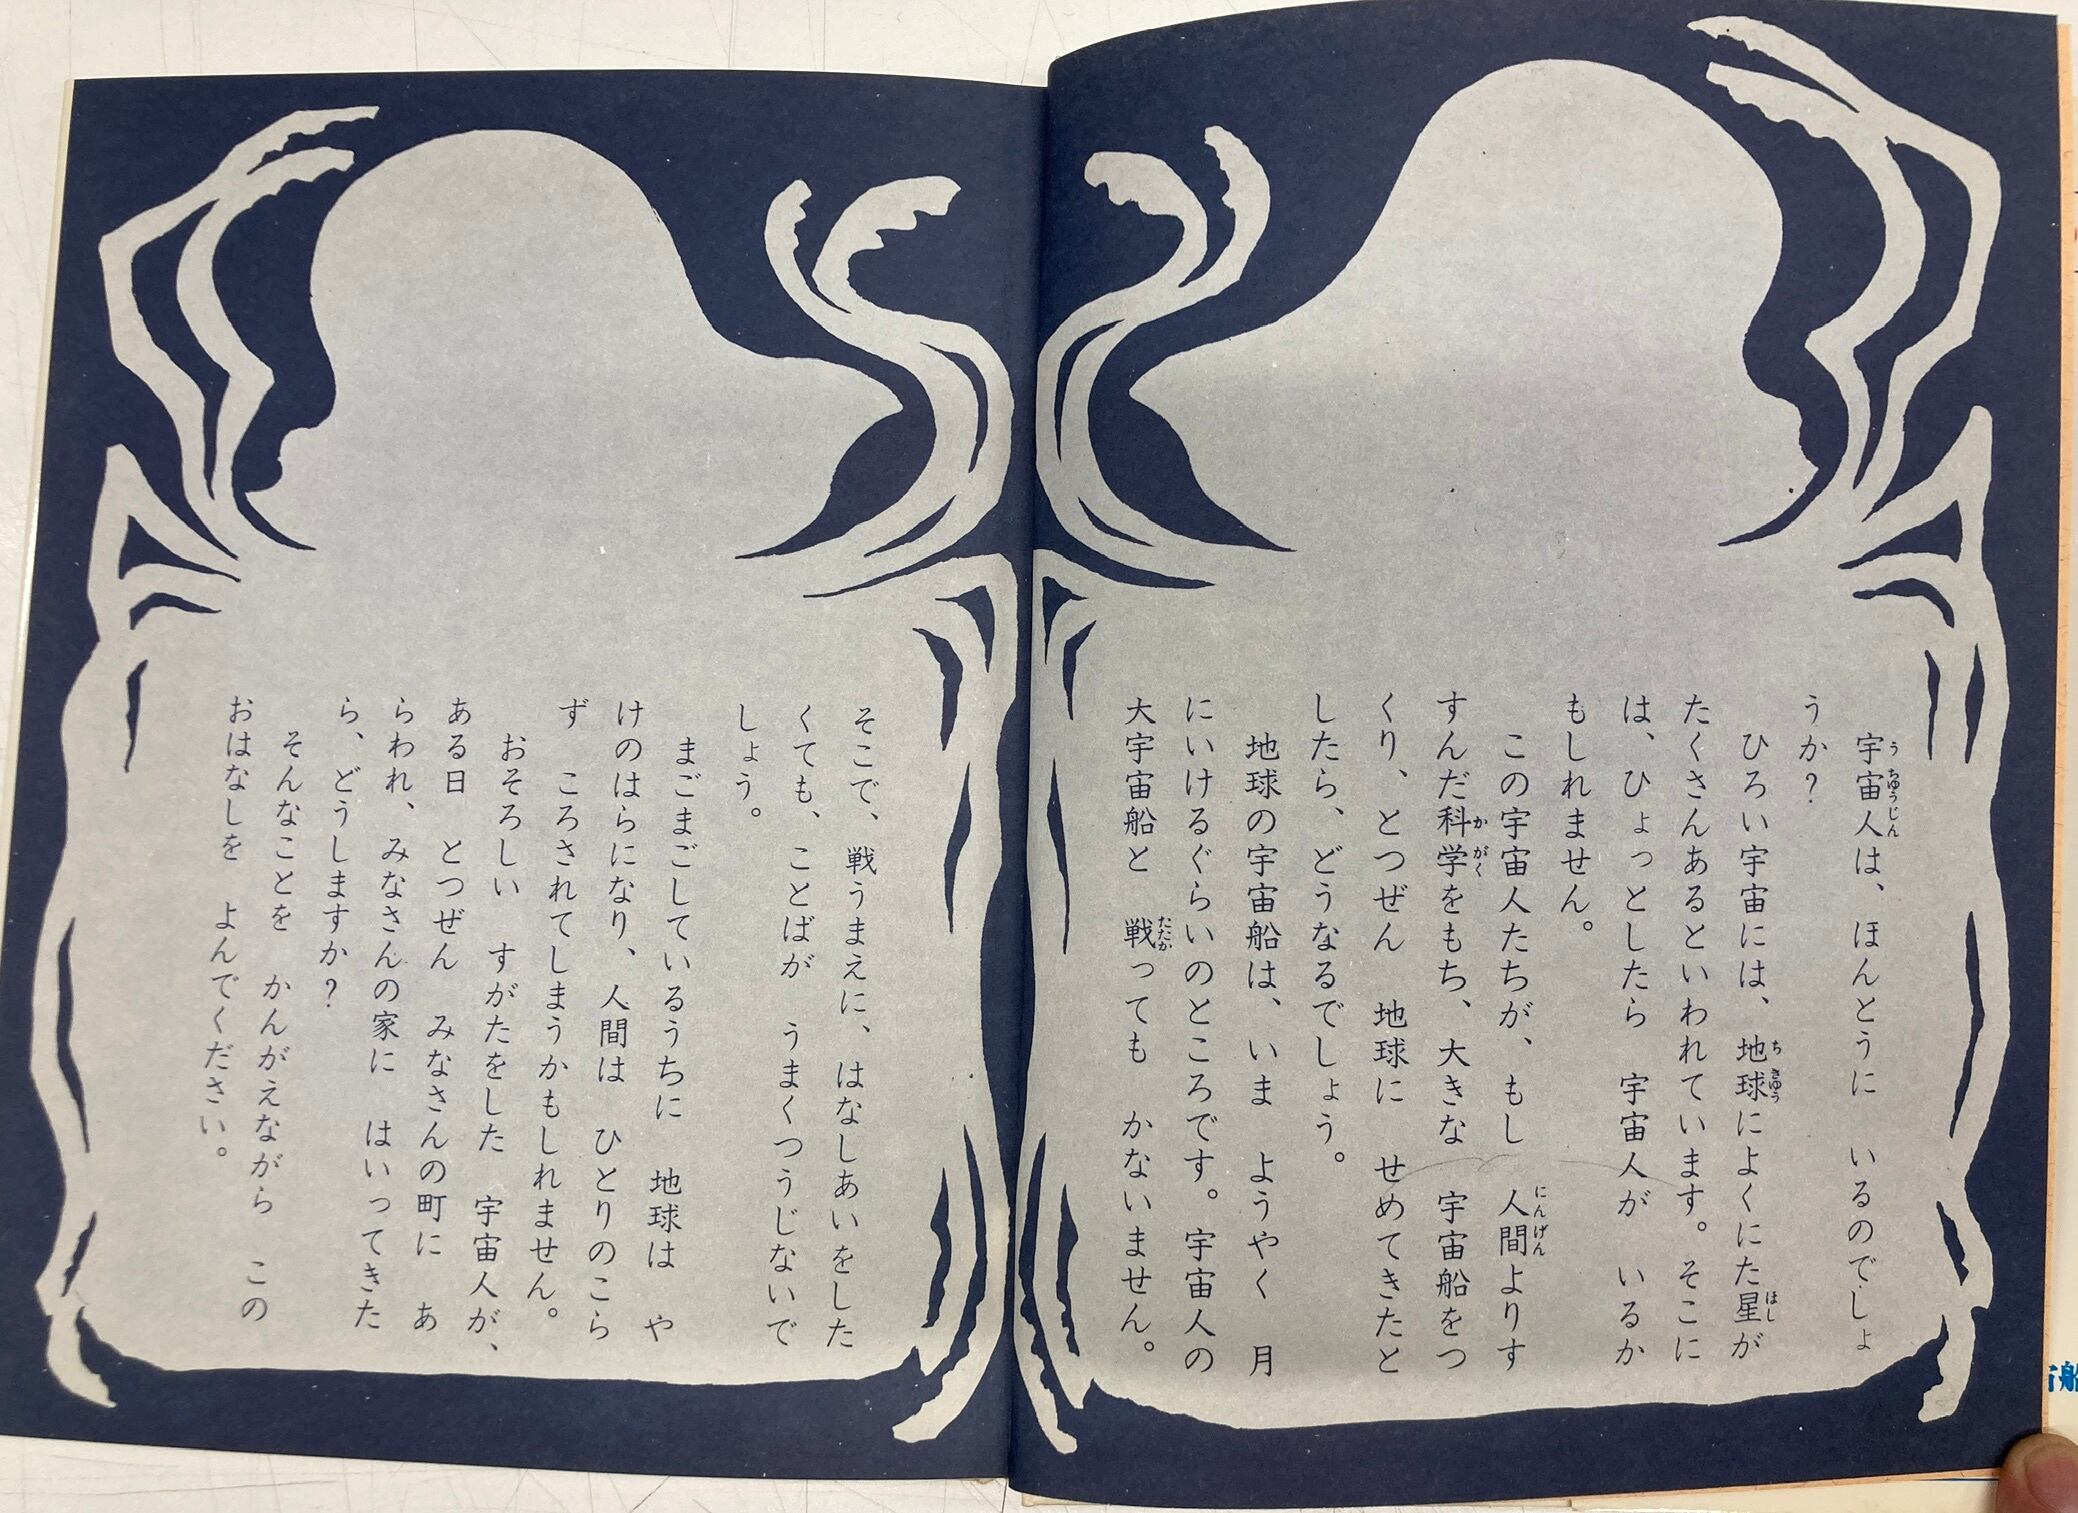 宇宙人は、ほんとうに　いるのでしょ
うか？
ひろい宇宙には、地球によくにた星が
たくさんあるといわれています。そこに
は、ひょっとしたら　宇宙人が　いるか
もしれません。
この宇宙人たちが、もし　人間よりす
すんだ科学をもち、大きな　宇宙船をつ
くり、とつぜん　地球に　せめてきたと
したら、どうなるでしょう。
地球の宇宙船は、いま　ようやく　月
にいけるぐらいのところです。宇宙人の
大宇宙船と　戦っても　かないません。
そこで、戦うまえに、はなしあいをした
くても、ことばが　うまくつうじないで
しょう。
まごまごしているうちに　地球は　や
けのはらになり、人間は　ひとりのこら
ず　ころされてしまうかもしれません。
おそろしい　すがたをした　宇宙人が、
ある日　とつぜん　みなさんの町に　あ
らわれ、みなさんの家に　はいってきた
ら、どうしますか？
そんなことを　かんがえながら　この
おはなしを　よんでください。